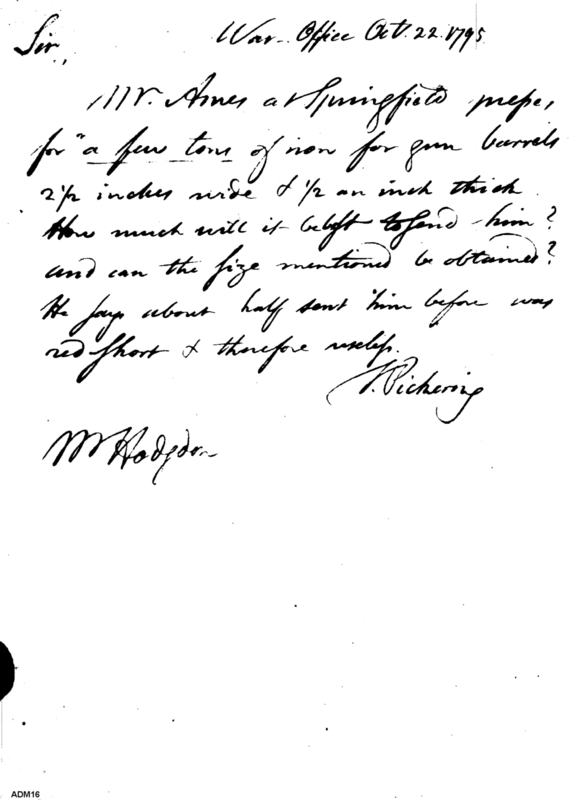 War-Office Oct. 22. 1795
Sir,
Mr. Ames at Springfield presses
for "a few tons of iron for gun barrels
2 1/2 inches wide & 1/2 an inch thick.
How much will it be best to send him?
and can the size mentioned be obtained?
He says about half sent him before was
red short & therefore useless.
T. Pickering
Mr Hodgdon
ADM16